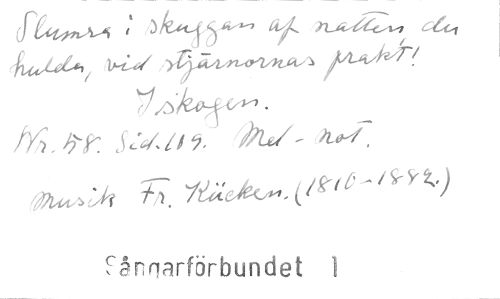 Slumra i skuggan af natten du
hulda, vid stjärnornas prakt!
I skogen.
Nr. 58. Sid. 109. Mel-not.
musik Fr. Kücken. (1810-1882.)
Sångarförbundet 1